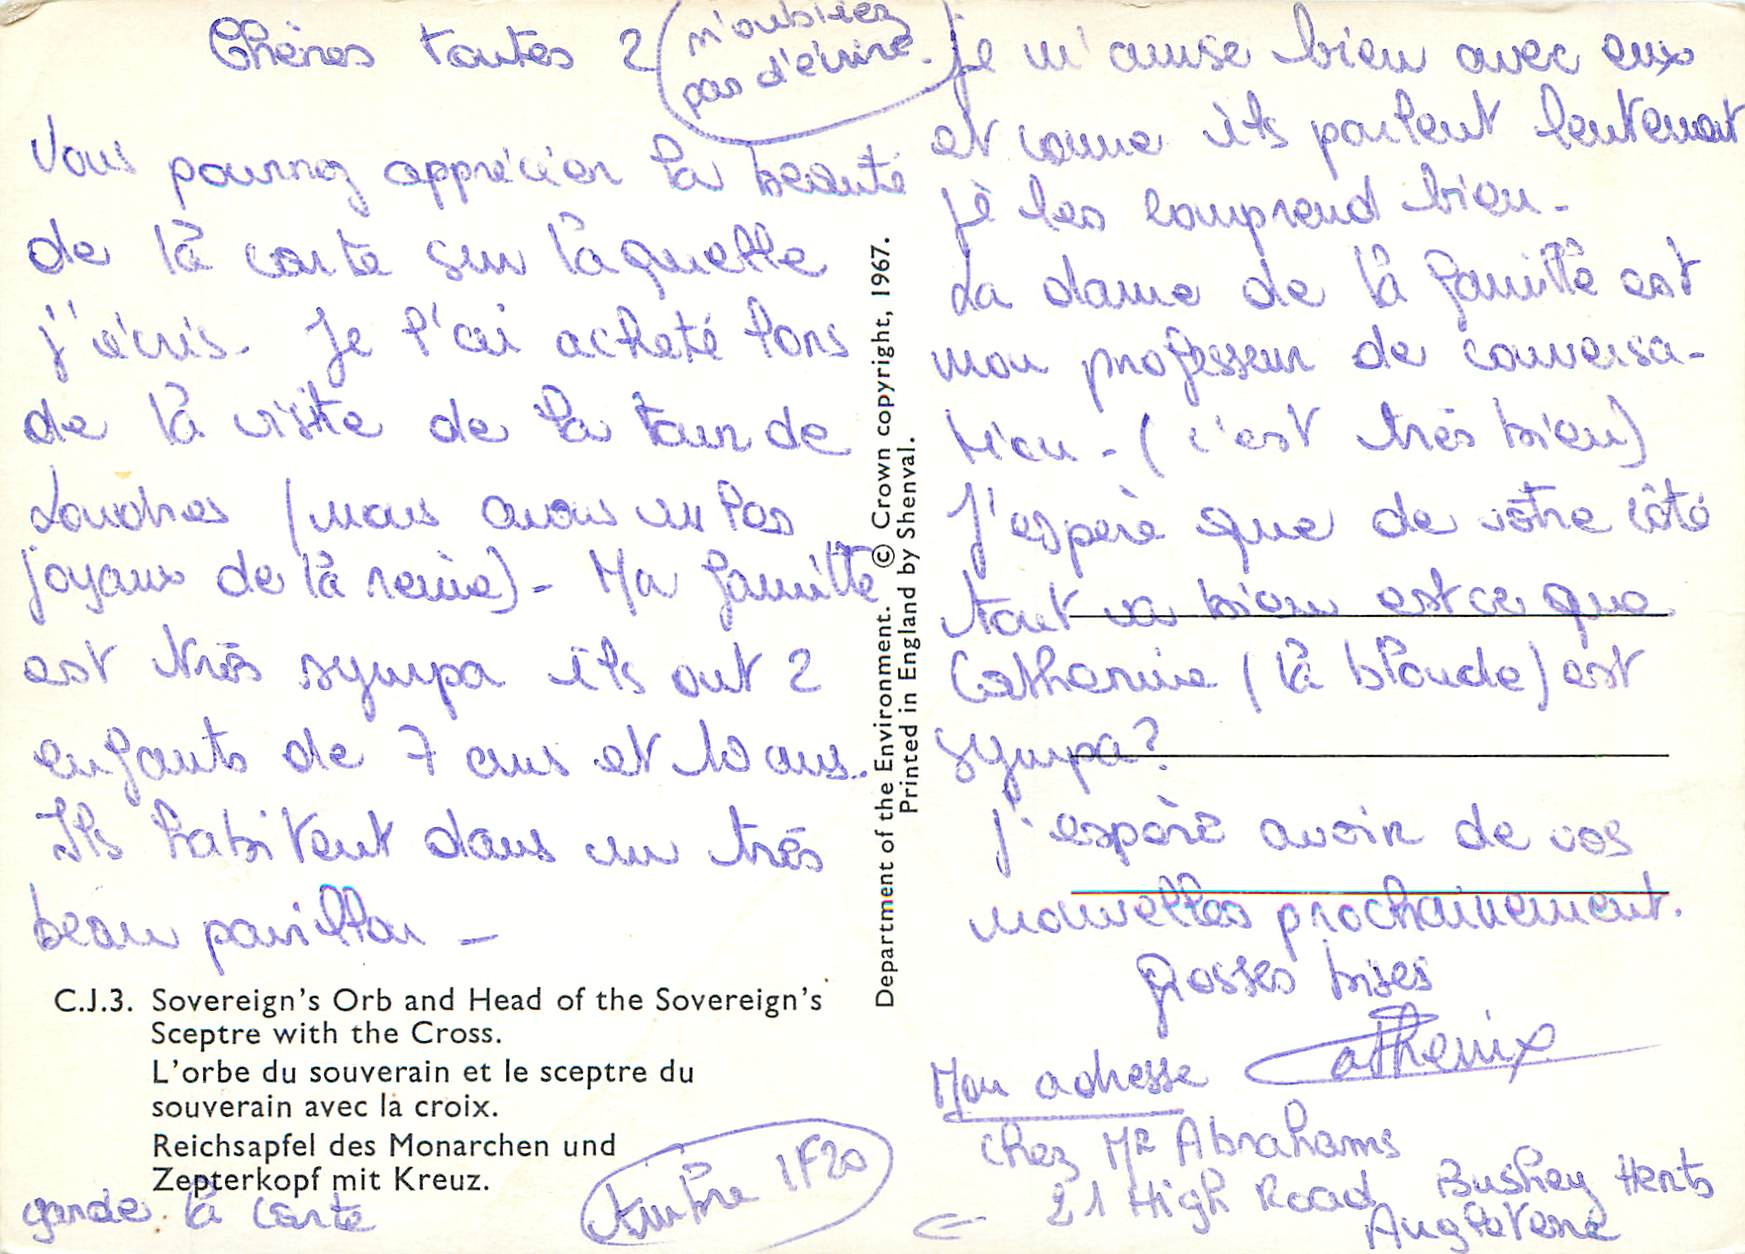 Chères toutes 2
(m'oubliez
pas d'écrire.
Vous pourrez apprécier la beauté
de la carte sur laquelle
j'écris. Je l'ai acheté lors
de la visite de la tour de
Londres (nous avons vu les
joyaux de la reine) - Ma famille
est très sympa ils ont 2
enfants de 7 ans et 10 ans..
Ils habitent dans un très
beau pavillon -
C.J.3. Sovereign's Orb and Head of the Sovereign's
Sceptre with the Cross.
L'orbe du souverain et le sceptre du
souverain avec la croix.
Reichsapfel des Monarchen und
Zepterkopf mit Kreuz.
garde la carte
timbre 1F20
Department of the Environment. © Crown copyright, 1967.
Printed in England by Shenval.
je m'amuse bien avec eux
et comme ils parlent lentement
je les comprend bien -
La dame de la famille est
mon professeur de conversa-
tion - (c'est très bien)
J'espère que de votre côté
tout va bien est ce que
Catherine (la blonde) est
sympa?
J'espère avoir de vos
nouvelles prochainement.
Grosses bises
Mon adresse
chez Mr Abrahams
21 High Road Bushey Herts
Angleterre